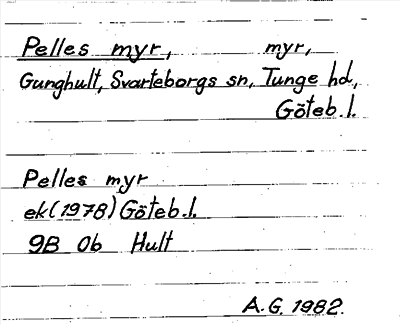 Pelles myr, myr,
Gunghult, Svarteborgs sn, Tunge hd,
Göteb. l.
Pelles myr
ek (1978) Göteb. l.
9B 0b Hult
A. G. 1982.